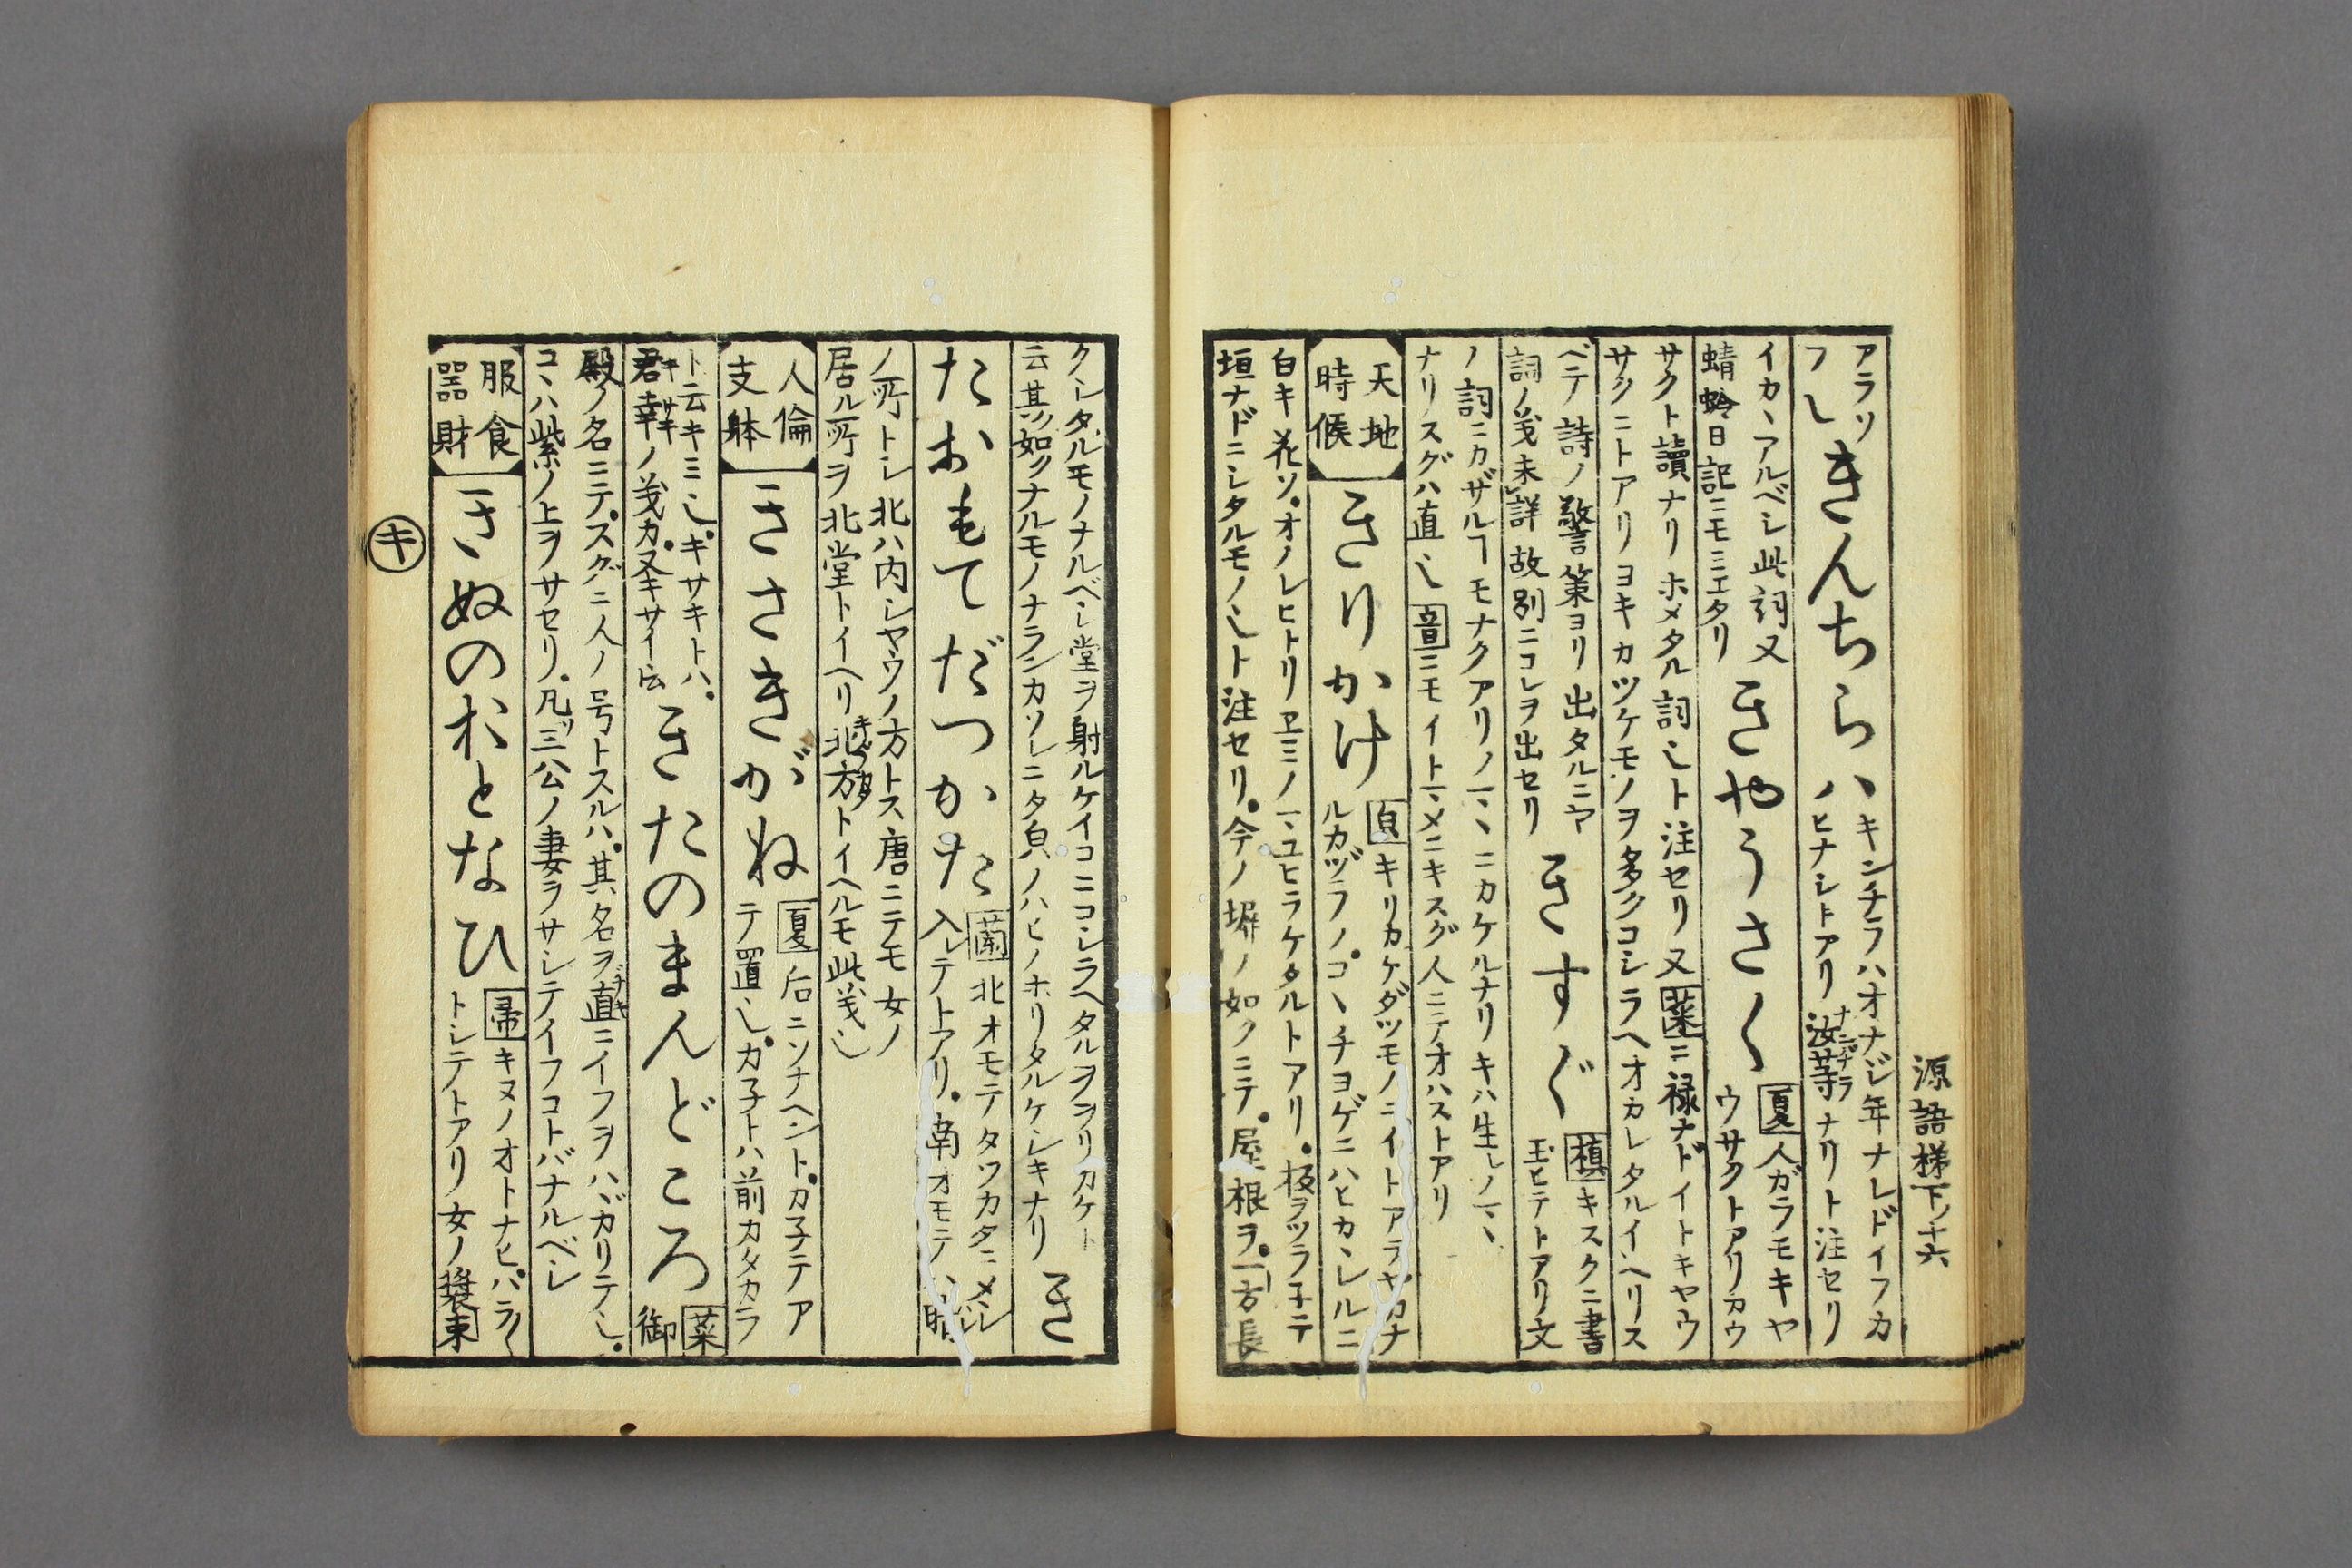 源語梯下ノ十六
アラソ
フ乚
きんちら
ハキンチラハオナジ年ナレドイフカ
ハヒナシトアリ汝等ナリト注セリ
イカヽアルベシ此詞又
蜻蛉日記ニモミエタリ
きやうさく
夏人ガラモキヤ
ウサクトアリカウ
サクト讀ナリホメタル詞乚ト注セリ又葉ニ禄ナドイトキヤウ
サクニトアリヨキカツケモノヲ多クコシラヘオカレタルイヘリス
ベテ詩ノ警策ヨリ出タルニヤ
詞ノ義未詳故別ニコレヲ出セリ
きすぐ
槙キスクニ書
玉ヒテトアリ文
ノ詞ニカザルヿモナクアリノマヽニカケルナリキハ生ノマヽ
ナリスグハ直乚音ニモイトマメニキスグ人ニテオハストアリ
天地
時候
きりかけ
皃キリカケダツモノニイトアラヤカナ
ルカヅラノ。コヽチヨゲニハヒカヽレルニ
白キ花ソ。オノレヒトリヱミノマユヒラケタルトアリ。板ヲツラ子テ
垣ナドニシタルモノ乚ト注セリ。今ノ塀ノ如クニテ。屋根ヲ。一方長
クシタルモノナルベシ堂ヲ射ルケイコニコシラヘタルヲヲリカケト
云其ノ如クナルモノナランカソレニタ皃ノハヒノホリタルケシキナリ
き
たおもてだつかた
蘭北オモテタツカタニメシ
入レテトアリ。南オモテハ晴
ノ所トシ北ハ内シヤウノ方トス唐ニテモ女ノ
居ル所ヲ北堂トイヘリ北方トイヘルモ此義乚
人倫
支躰
きさきがね
夏后ニソナヘント。カ子テア
テ置乚。カ子トハ前カタカラ
ト云キミ乚。キサキトハ。
君幸ノ義カ。又キサイ㐪
きたのまんどころ
葉
御
殿ノ名ニテ。スグニ人ノ号トスルハ。其名ヲ直ニイフヲハヾカリテ乚。
コヽハ紫ノ上ヲサセリ。凡ソ三公ノ妻ヲサシテイフコトバナルベシ
服食
噐財
きぬのおとなひ
帚キヌノオトナヒ。ハラ〱
トシテトアリ女ノ装束
キ